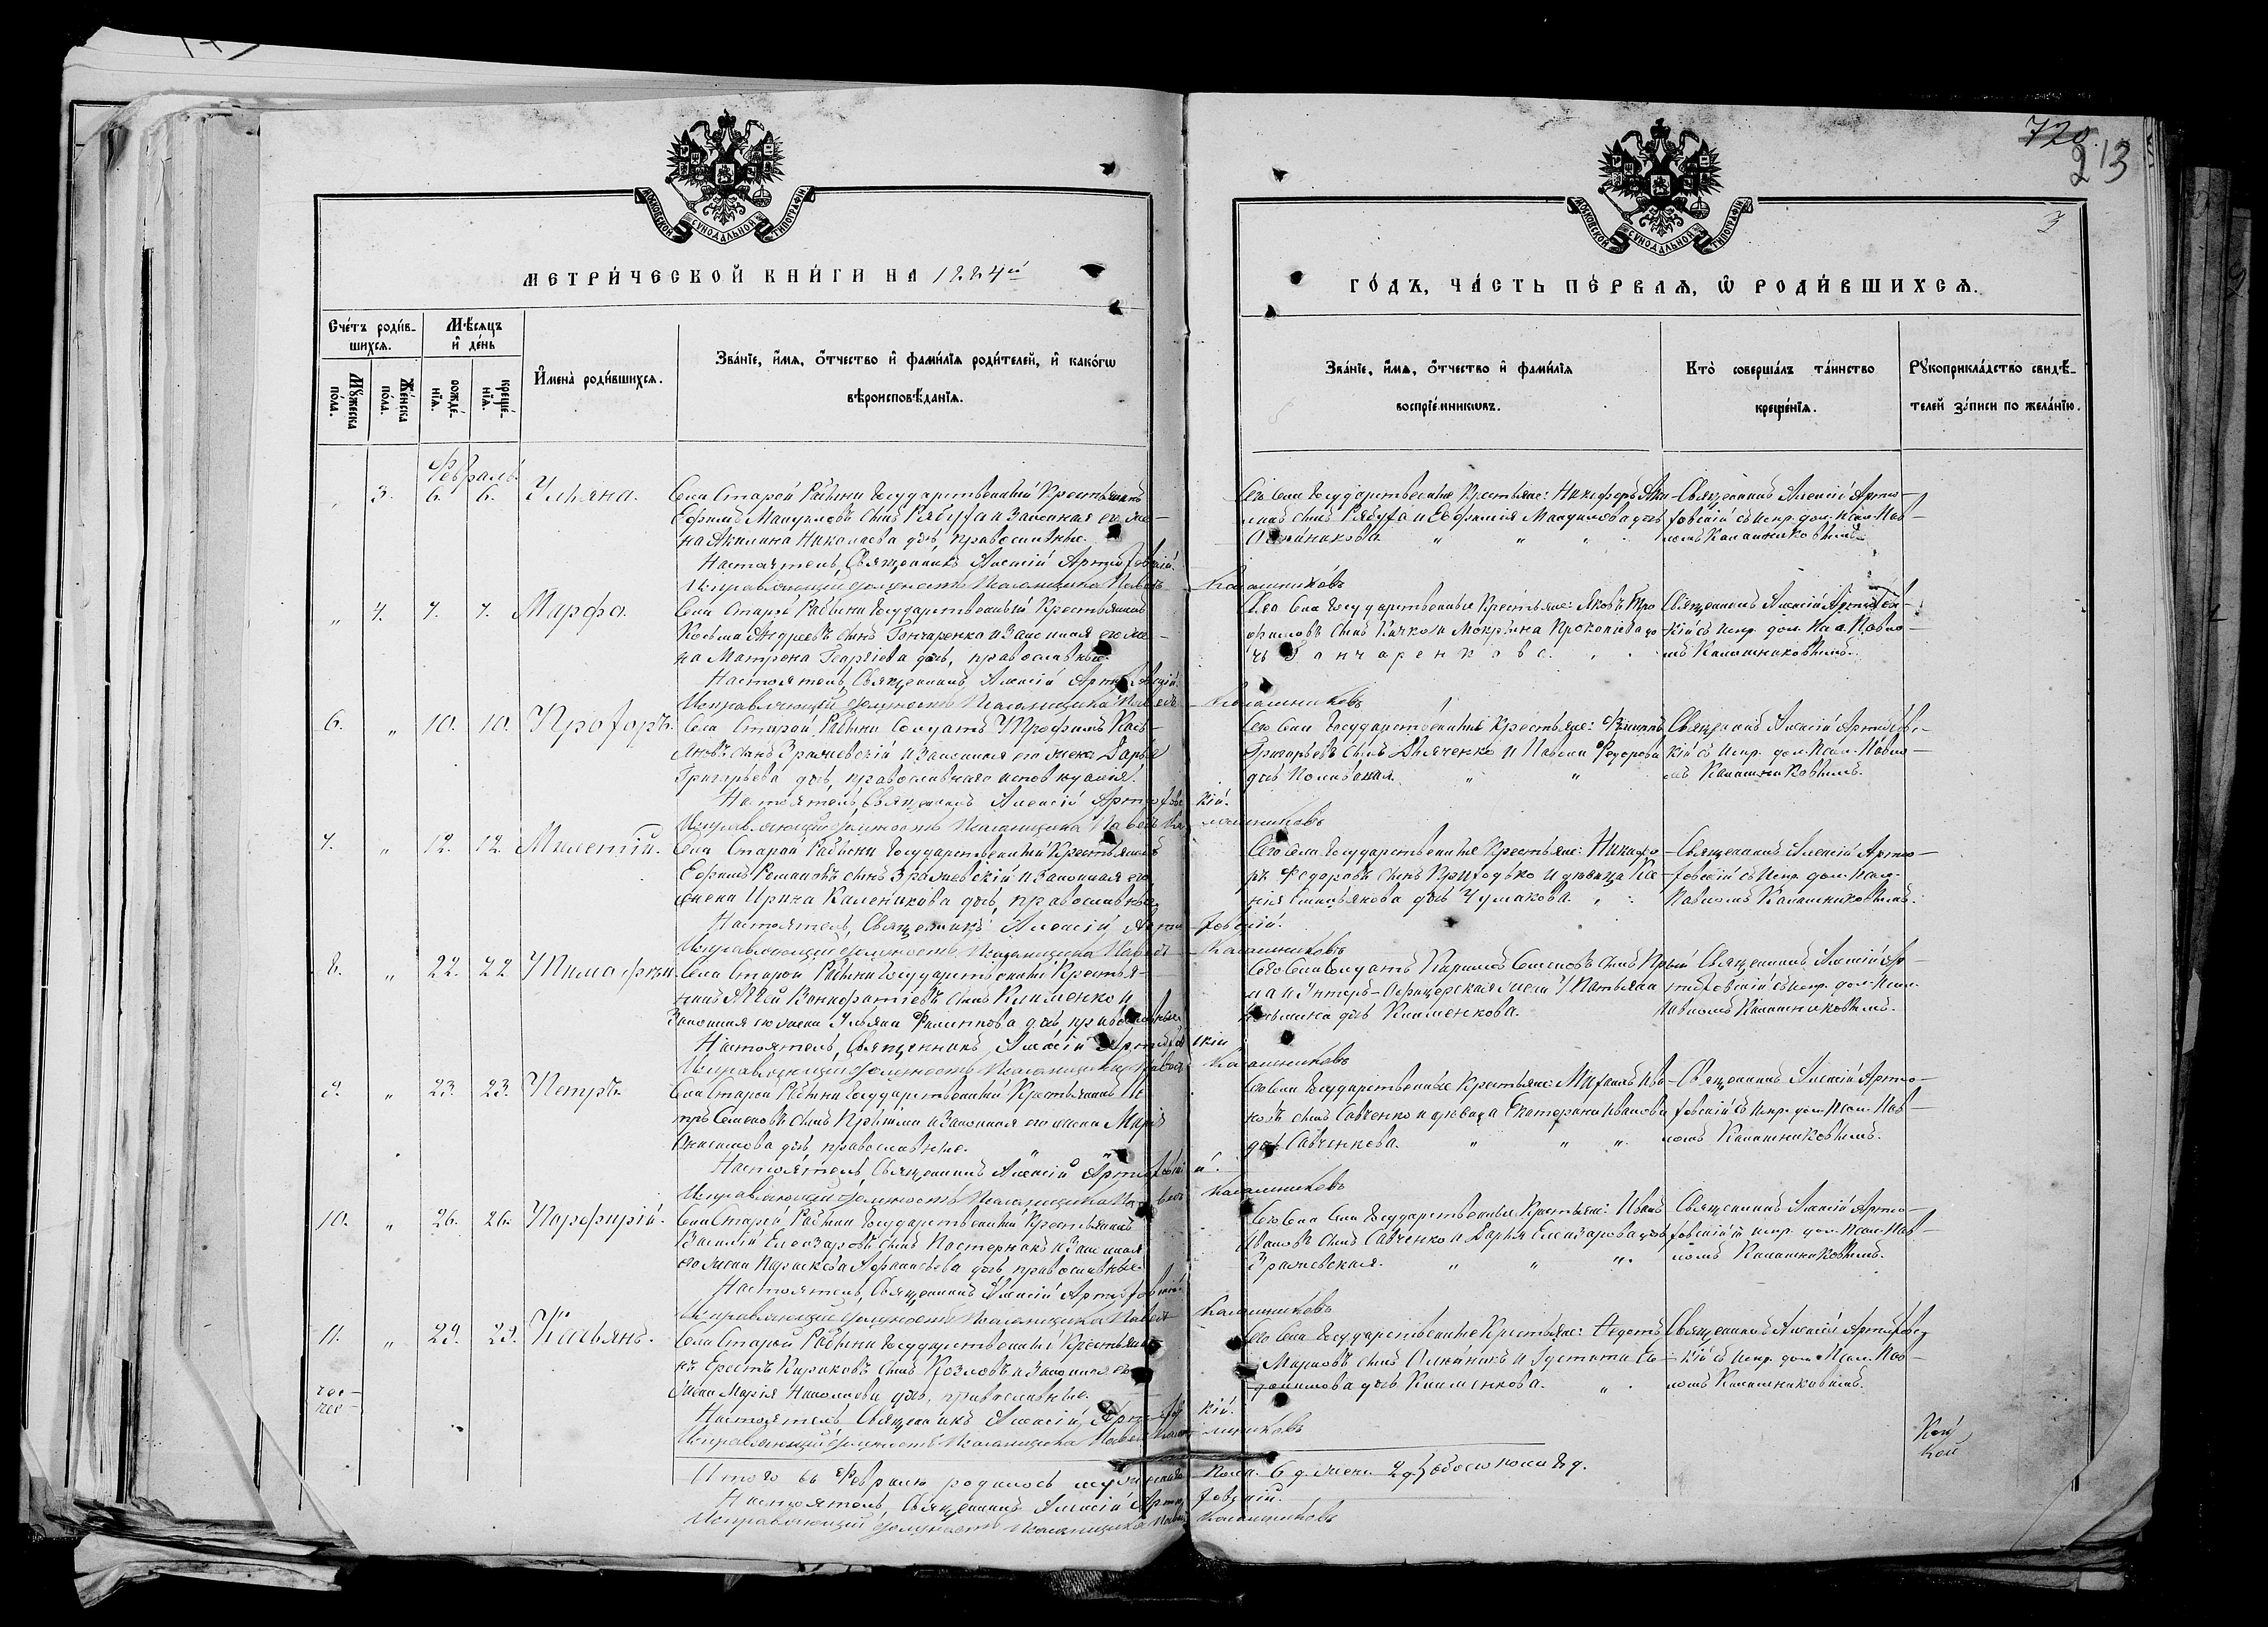 720.
213
3
МОСКОВСКОЙ СУНОДАЛЬНОЙ ТИПОГРАФІИ
МОСКОВСКОЙ СУНОДАЛЬНОЙ ТИПОГРАФІИ
МЕТРИ́ЧЕСКОЙ КНИ́ГИ НА 1884й
ГО́ДЪ, ЧА́СТЬ ПЕ́РВАЯ, Ѽ РОДИ́ВШИХСѦ.
Сче́тъ роди́в-
шихсѧ.
Мѣ́сяцъ
и҆ де́нь
Мꙋ́жеска
по́ла.
Же́нска
по́ла.
рожде́-
нїѧ.
креще́-
нїѧ.
И҆мена̀ роди́вшихсѧ.
Зва́нїе, и҆́мѧ, ѻ҆́тчество и҆ фами́лїѧ роди́телей, и҆ како́гѡ
вѣроисповѣ́данїѧ.
Зва́нїе, и҆́мѧ, ѻ҆́тчество и҆ фами́лїѧ
воспрїе́мникѡвъ.
Кто̀ соверша́лъ та́инство
креще́нїѧ.
Рꙋкоприкла́дство свидѣ́-
телей за́писи по жела́нїю.
Февраль
3. 6. 6. Ульяна. Села Старой Рябины Государственный Крестьянинъ
Ефимъ Мануиловъ сынъ Рябуха и Законная его же-
на Акилина Николаева дочь, православные.
Настоятель, Священникъ Алексій Артюховскій.
Исправляющій должность Псаломщика Павелъ Калашниковъ
Его Села Государственные Крестьяне: Никифоръ
сынъ Рябуха и Евфимія Мануилова дочь
Олейникова. " " "
Священникъ Алексій Артю-
ховскій съ Испр. дол. Псал. Пав-
ломъ Калашниковымъ.
" 4. 7. 7. Марфа. Села Старой Рябины Государственный Крестьянинъ
Косьма Андреевъ сынъ Гончаренко и Законная его же-
на Матрона Георгіева дочь, православные.
Настоятель, Священникъ Алексій Артюховскій.
Исправляющій должность Псаломщика Павелъ Калашниковъ
Его Села Государственные Крестьяне: Яковъ Тро-
фимовъ сынъ и Мокрина Прокопіева до-
чь Гончаренкова. " "
Священникъ Алексій Артюховс-
кій съ Испр. дол. Псал. Павло-
мъ Калашниковымъ.
6. " 10. 10. Прохоръ. Села Старой Рябины Солдатъ Трофимъ
сынъ Зражевскій и Законная его жена Дарья
Григорьева дочь, православнаго исповѣданія.
Настоятель, Священникъ Алексій Артюховскій.
Исправляющій должность Псаломщика Павелъ Калашниковъ
Его Села Государственные Крестьяне: Филиппъ
Григорьевъ сынъ Дьяченко и Павла Федорова
дочь " "
Священникъ Алексій Артюховс-
кій съ Испр. дол. Псал. Павло-
мъ Калашниковымъ.
7. " 12. 12. Милетій. Села Старой Рябины Государственный Крестьянинъ
Ефимъ Романовъ сынъ Зражевскій и Законная его
жена Ирина Каленикова дочь, православные.
Настоятель, Священникъ Алексій Артюховскій.
Исправляющій должность Псаломщика Павелъ Калашниковъ
Его Села Государственные Крестьяне: Никифо-
ръ Федоровъ сынъ Приходько и девица Ксе-
нія дочь Чумакова. "
Священникъ Алексій Артю-
ховскій съ Испр. дол. Псал.
Павломъ Калашниковымъ.
8. " 22. 22 Тимофей. Села Старой Рябины Государственный Крестья-
нинъ сынъ Клименко и
Законная его жена Ульяна Филиппова дочь, православные.
Настоятель, Священникъ Алексій Артюховскій
Исправляющій должность Псаломщика Павелъ Калашниковъ
Его Села Солдатъ Кириллъ Семеновъ сынъ
и Унтеръ-Офицерская жена Татьяна
Козьмина дочь Клименкова.
Священникъ Алексій Ар-
тюховскій съ Испр. дол. Псал.
Павломъ Калашниковымъ.
9. " 23. 23. Петръ. Села Старой Рябины Государственный Крестьянинъ Пе-
тръ Семеновъ сынъ и Законная его жена Марія
Онисимова дочь, православные.
Настоятель, Священникъ Алексій Артюховскій.
Исправляющій должность Псаломщика Павелъ Калашниковъ
Его Села Государственные Крестьяне: Михаилъ
сынъ Савченко и девица Екатерина Иванова
дочь Савченкова. " " "
Священникъ Алексій Артю-
ховскій съ Испр. дол. Псал. Пав-
ломъ Калашниковымъ.
10. " 26. 26. Порфирій. Села Старой Рябины Государственный Крестьянинъ
Василій Елеазаровъ сынъ Пастернакъ и Законная
его жена Параскева Афанасьева дочь православные.
Настоятель, Священникъ Алексій Артюховскій.
Исправляющій должность Псаломщика Павелъ Калашниковъ
Его Села Государственные Крестьяне: Иванъ
Ивановъ сынъ Савченко и Дарья Елеазарова дочь
Зражевская. " " "
Священникъ Алексій Артю-
ховскій съ испр. дол. Псал. Пав-
ломъ Калашниковымъ.
11. " 29. 29. Касьянъ. Села Старой Рябины Государственный Крестьяни-
нъ сынъ Козловъ и Законная его
жена Марія Николаева дочь, православные.
Настоятель Священникъ Алексій Артюховскій.
Исправляющій должность Псаломщика Павелъ Калашниковъ
Его Села Государственные Крестьяне: Федотъ
Марковъ сынъ Олейникъ и Густина Ев-
докимова дочь Клименкова. "
Священникъ Алексій Артюховс-
кій съ Испр. дол. Псал. Пав-
ломъ Калашниковымъ.
Итого въ Февралѣ родилось мужескаго пола 6 д. жен. 2 д. обоего пола 8 д.
Настоятель, Священникъ Алексій Артюховскій.
Исправляющій должность Псаломщика Павелъ Калашниковъ